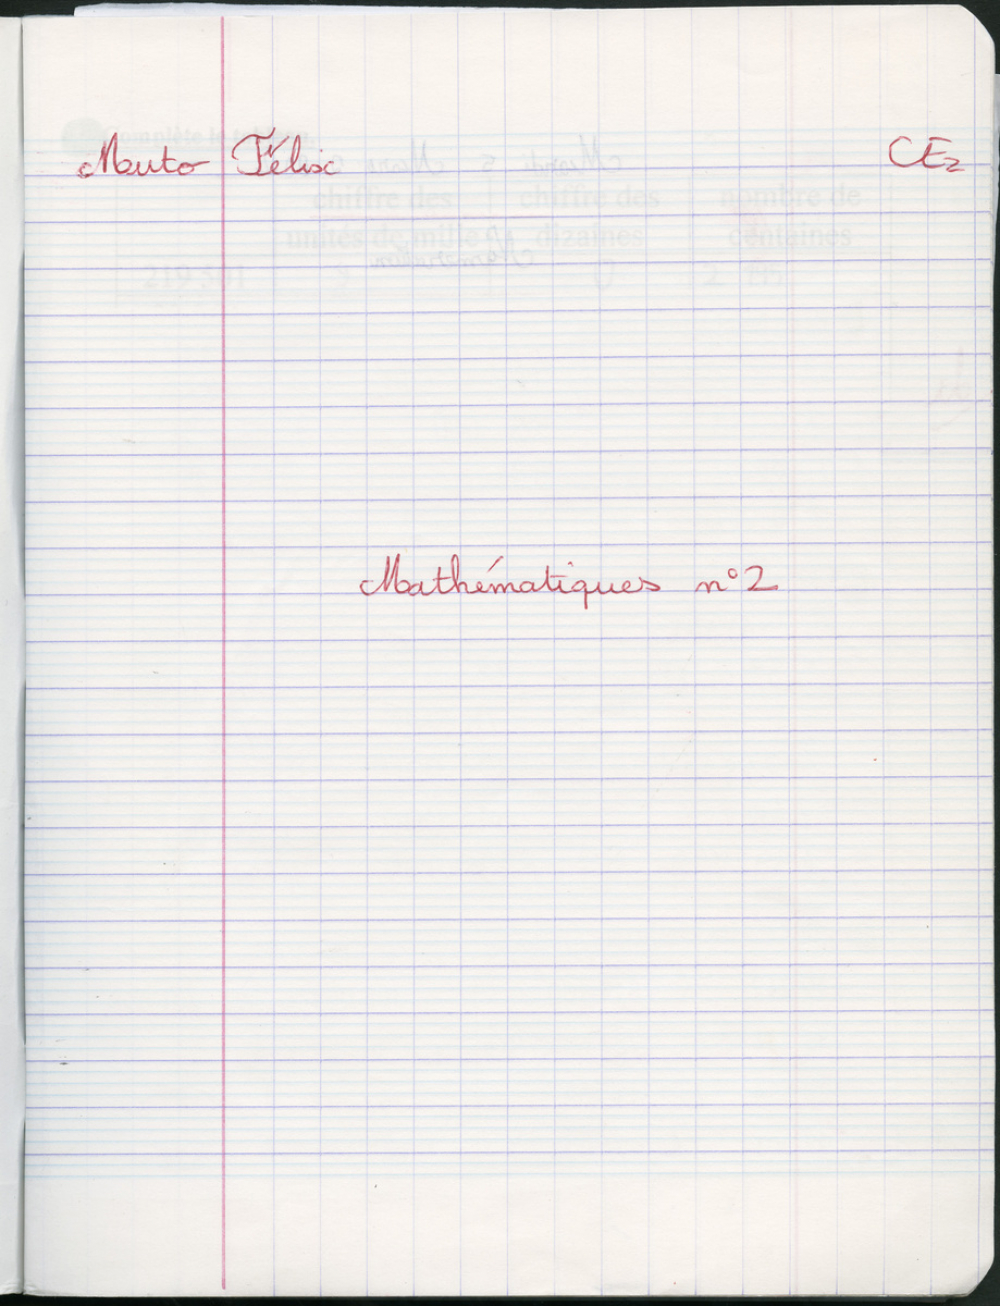 Mento Félix CE2
Mathématiques n°2